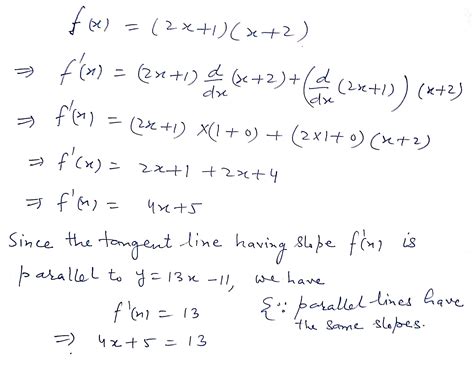 f(x) = (2x+1)(x+2)
⇒ f'(x) = (2x+1) d/dx (x+2) + (d/dx (2x+1)) (x+2)
⇒ f'(x) = (2x+1) × (1+0) + (2×1+0) (x+2)
⇒ f'(x) = 2x+1 + 2x+4
⇒ f'(x) = 4x+5
Since the tangent line having slope f'(x) is
parallel to y = 13x - 11, we have
f'(x) = 13 {∵ parallel lines have
the same slopes.
⇒ 4x + 5 = 13